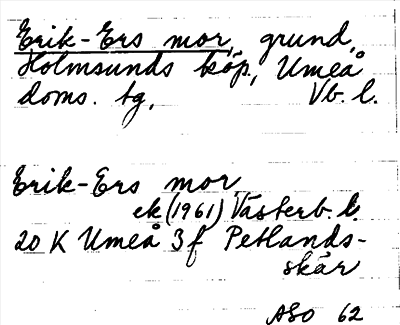 Erik-Ers mor, grund,
Holmsunds köp., Umeå
doms. tg, Vb. l.
Erik-Ers mor
ek (1961) Västerb. l.
20 K Umeå 3 f Petlands-
skär
ASO 62